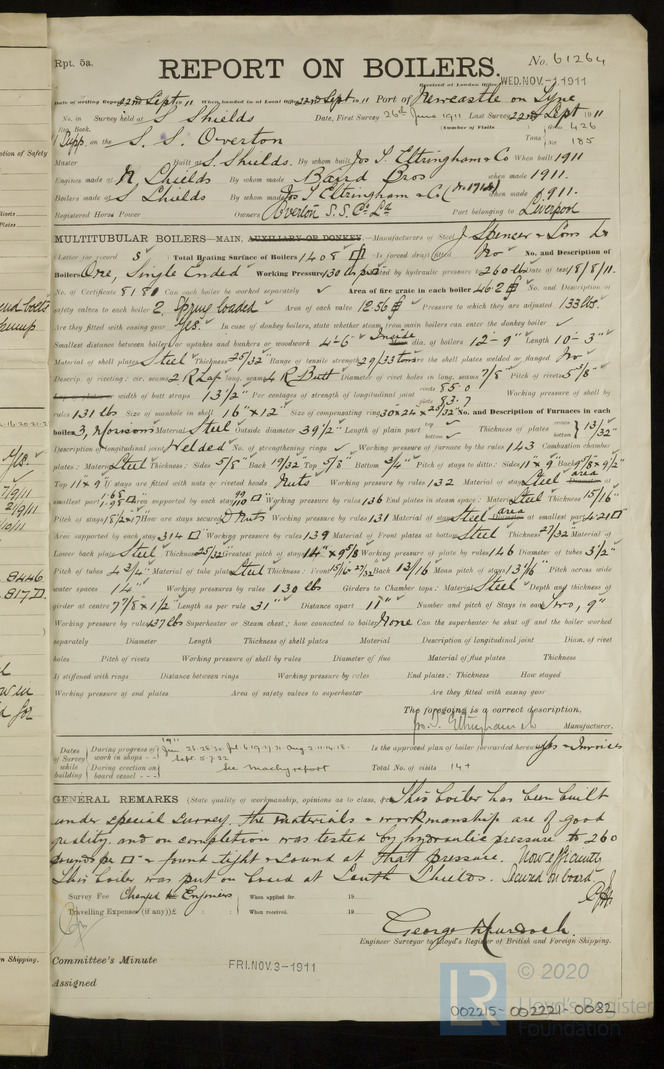 Rpt. 5a.
REPORT ON BOILERS.
No. 61264
Received at London Office WED. NOV. 1 1911
Date of writing Report 22nd Sept 1911 When handed in at Local Office 22nd Sept 1911 Port of Newcastle on Tyne
No. in Reg. Book. Survey held at S Shields Date, First Survey 26th June 1911 Last Survey 22nd Sept 1911
(Number of Visits
11 Supp. on the S. S. Overton Tons Gross 426 Net 185
Master Built at S. Shields By whom built Jos T. Eltringham & Co When built 1911
Engines made at N Shields By whom made Baird Bros when made 1911.
Boilers made at S Shields By whom made Jos T Eltringham & Co. when made 1911.
Registered Horse Power Owners Overton S. S. Co. Ld Port belonging to Liverpool
MULTITUBULAR BOILERS — MAIN, AUXILIARY OR DONKEY. — Manufacturers of Steel J Spencer & Sons Ld
(Letter for record S) Total Heating Surface of Boilers 1408 □ Is forced draft fitted No No. and Description of
Boilers One, Single Ended Working Pressure 130 lb Tested by hydraulic pressure to 260 lb Date of test 18/8/11.
No. of Certificate 8180 Can each boiler be worked separately ✓ Area of fire grate in each boiler 46.2 No. and Description of
safety valves to each boiler 2, Spring loaded Area of each valve 12.56 Pressure to which they are adjusted 133 lbs.
Are they fitted with easing gear Yes. In case of donkey boilers, state whether steam from main boilers can enter the donkey boiler ✓
Smallest distance between boilers or uptakes and bunkers or woodwork 4-6 Inside dia. of boilers 12-9" Length 10-3"
Material of shell plates Steel Thickness 25/32" Range of tensile strength 29/33 tons Are the shell plates welded or flanged No
Descrip. of riveting: cir. seams 2 R Lap long. seams 4 R Butt Diameter of rivet holes in long. seams 7/8" Pitch of rivets 5 3/8"
width of butt straps 13 1/2" Per centages of strength of longitudinal joint rivets 85.0 plate 83.7 Working pressure of shell by
rules 131 lb Size of manhole in shell 16" x 12" Size of compensating ring 30 x 24 x 25/32 No. and Description of Furnaces in each
boiler 3, Morisons Material Steel Outside diameter 39 1/2" Length of plain part top bottom ✓ Thickness of plates crown bottom 13/32"
Description of longitudinal joint Welded No. of strengthening rings ✓ Working pressure of furnace by the rules 143 Combustion chamber
plates: Material Steel Thickness: Sides 5/8" Back 19/32 Top 5/8" Bottom 3/4" Pitch of stays to ditto: Sides 11" x 9" Back 9 5/8 x 9 1/2"
Top 11 x 9" If stays are fitted with nuts or riveted heads Nuts Working pressure by rules 132 Material of stays Steel area at
smallest part 1.68 1.95 □ Area supported by each stay 99 110 □" Working pressure by rules 136 End plates in steam space: Material Steel Thickness 15/16"
Pitch of stays 18 1/2 x 17 How are stays secured D Nuts Working pressure by rules 131 Material of stays Steel area at smallest part 4.21 □
Area supported by each stay 314 □ Working pressure by rules 139 Material of Front plates at bottom Steel Thickness 27/32 Material of
Lower back plate Steel Thickness 25/32 Greatest pitch of stays 14" x 9 5/8 Working pressure of plate by rules 146 Diameter of tubes 3 1/2"
Pitch of tubes 4 3/4" Material of tube plates Steel Thickness: Front 15/16 - 27/32 Back 13/16 Mean pitch of stays 13 1/16" Pitch across wide
water spaces 14" Working pressures by rules 130 lbs Girders to Chamber tops: Material Steel Depth and thickness of
girder at centre 7 7/8 x 1 1/2" Length as per rule 31" Distance apart 11" Number and pitch of Stays in each Two, 9"
Working pressure by rules 137 lbs Superheater or Steam chest; how connected to boiler None Can the superheater be shut off and the boiler worked
separately Diameter Length Thickness of shell plates Material Description of longitudinal joint Diam. of rivet
holes Pitch of rivets Working pressure of shell by rules Diameter of flue Material of flue plates Thickness
If stiffened with rings Distance between rings Working pressure by rules End plates: Thickness How stayed
Working pressure of end plates Area of safety valves to superheater Are they fitted with easing gear
The foregoing is a correct description,
Jos. T. Eltringham & Co Manufacturer.
Dates of Survey while building
During progress of work in shops - - 1911 June 26.28.30 Jul. 6.19.21.31 Aug. 2.11.14.18. Sept. 5.7.22
During erection on board vessel - - - See machy report
Is the approved plan of boiler forwarded herewith Yes & Invoices
Total No. of visits 14 +
GENERAL REMARKS (State quality of workmanship, opinions as to class, &c. This boiler has been built
under special survey, the materials & workmanship are of good
quality, and on completion was tested by hydraulic pressure to 260
pounds per □" & found tight & sound at that pressure. Now efficiently
This boiler was put on board at South Shields. Secured on board.
Survey Fee Charged to Engineers When applied for. 19
Travelling Expenses (if any) £ When received. 19
George Murdoch.
Engineer Surveyor to Lloyd's Register of British and Foreign Shipping.
Committee's Minute FRI. NOV. 3 - 1911
Assigned
© 2020
Lloyd's Register
Foundation
002215-002221-0082